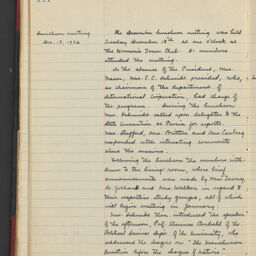 Luncheon meeting
Dec. 13, 1932
The December luncheon meeting was held
Tuesday December 13th at one o'clock at
the Womans Town Club. 81 members
attended the meeting.
In the absence of the President, Mrs.
Mrs. E. C. Schmidt presided, who,
as chairman of the department of
International Cooperation, had charge of
the program. During the luncheon
Mrs. Schmidt called upon delegates to the
State Convention at Peoria for reports
Mrs. Stafford, Mrs. Britton and Mrs.
responded with interesting comments
about the sessions.
Following the luncheon the members with-
drew to the living room, where brief
announcements were made by Mrs.
and Mrs. Walker in regard to
their respective study groups, all of which
will begin meeting in January
Mrs. Schmidt then introduced the speaker
of the afternoon, Prof. Clarence Berdahl of the
Political Science Dept. of the University, who
addressed the league on "The Manchurian
Question before the League of Nations"